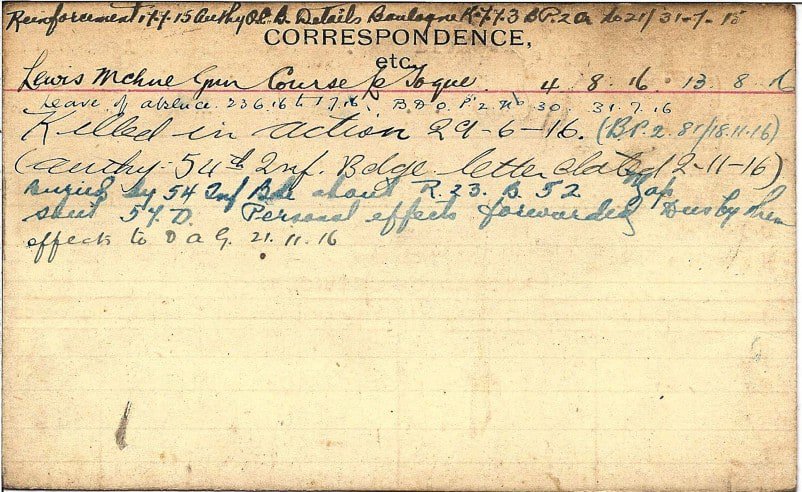 Reinforcement 17-7-15 authy O.C. B. Details Boulogne K-773 BP.2a to 21/31-7-15
CORRESPONDENCE,
etc.
Lewis Mchne Gun Course Le Toque. 4. 8. 16 13. 8. 16
Leave of absence. 23 6 16 to 1 7 16. B D O. P. 2. No 30. 31. 7. 16
Killed in action 29-6-16. (BP.2. 81/18.11.16)
(authy- 54th Inf. Bdge letter dated 12-11-16)
Buried by 54 Inf Bde about R. 23. B. 52 Map
sheet 57. D. Personal effects forwarded by them
effects to D a G. 21. 11. 16